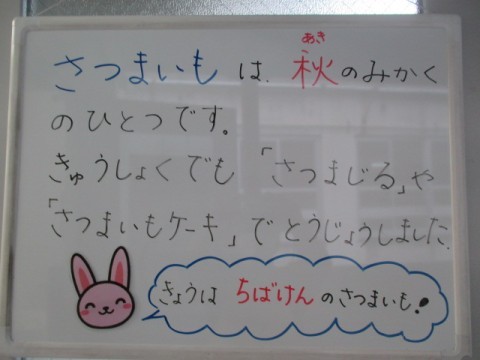 さつまいも は、秋のみかく
あき
のひとつです。
きゅうしょくでも 「さつまじる」や
「さつまいもケーキ」で とうじょうしました。
きょうは ちばけん のさつまいも!